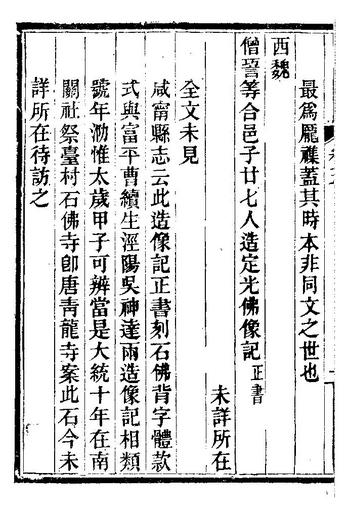 最爲龎襍蓋其時本非同文之世也
西魏
僧詧等合邑子廿七人造定光佛像記正書
未詳所在
全文未見
咸甯縣志云此造像記正書刻石佛背字體款
式與富平曹續生涇陽吳神達兩造像記相類
號年泐惟太歲甲子可辨當是大統十年在南
關社祭臺村石佛寺卽唐靑龍寺案此石今未
詳所在待訪之